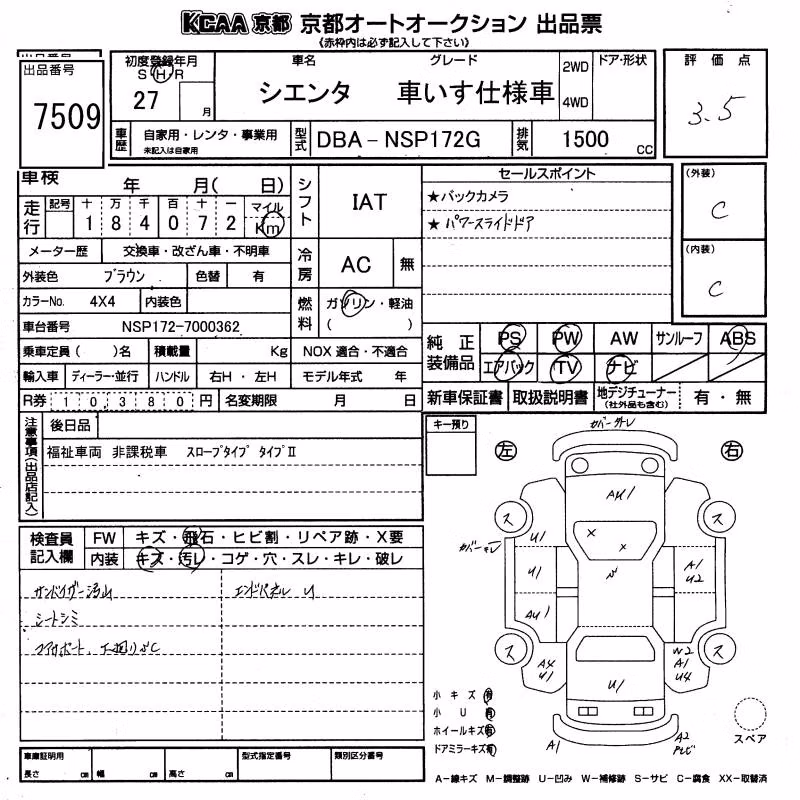 KCAA 京都 京都オートオークション 出品票
《赤枠内は必ず記入して下さい》
出品番号
7509
初度登録年月
S H R
27 月
車名 グレード
シエンタ 車いす仕様車
2WD
4WD
ドア・形状
評価点
3.5
車歴 自家用・レンタ・事業用
未記入は自家用
型式 DBA-NSP172G
排気 1500 cc
車検 年 月( 日)
シフト IAT
セールスポイント
★バックカメラ
★パワースライドドア
(外装)
C
(内装)
C
走行 記号 十 万 千 百 十 一 マイル
1 8 4 0 7 2 Km
メーター歴 交換車・改ざん車・不明車
冷房 AC 無
外装色 ブラウン 色替 有
カラーNo. 4X4 内装色
燃料 ガソリン・軽油
( )
車台番号 NSP172-7000362
乗車定員( )名 積載量 Kg NOX 適合・不適合
輸入車 ディーラー・並行 ハンドル 右H・左H モデル年式 年
R券 10380円 名変期限 月 日
純正装備品 PS PW AW サンルーフ ABS
エアバック TV ナビ
新車保証書 取扱説明書 地デジチューナー(社外品も含む) 有・無
注意事項(出品店記入)
後日品
福祉車両 非課税車 スロープタイプ タイプⅡ
キー預り
検査員記入欄
FW キズ・飛石・ヒビ割・リペア跡・X要
内装 キズ・汚レ・コゲ・穴・スレ・キレ・破レ
シートシミ
エンドパネル U
左 右
AU1
ス ス
U1
X X
U1
A1
U2
AU1
ス ス
A4
U1
W2
A1
U4
U1
A1
A2
小キズ 有
小U 有
ホイールキズ 有
ドアミラーキズ 有
スペア
車庫証明用
長さ cm 幅 cm 高さ cm
型式指定番号 類別区分番号
A-線キズ M-調整跡 U-凹み W-補修跡 S-サビ C-腐食 XX-取替済